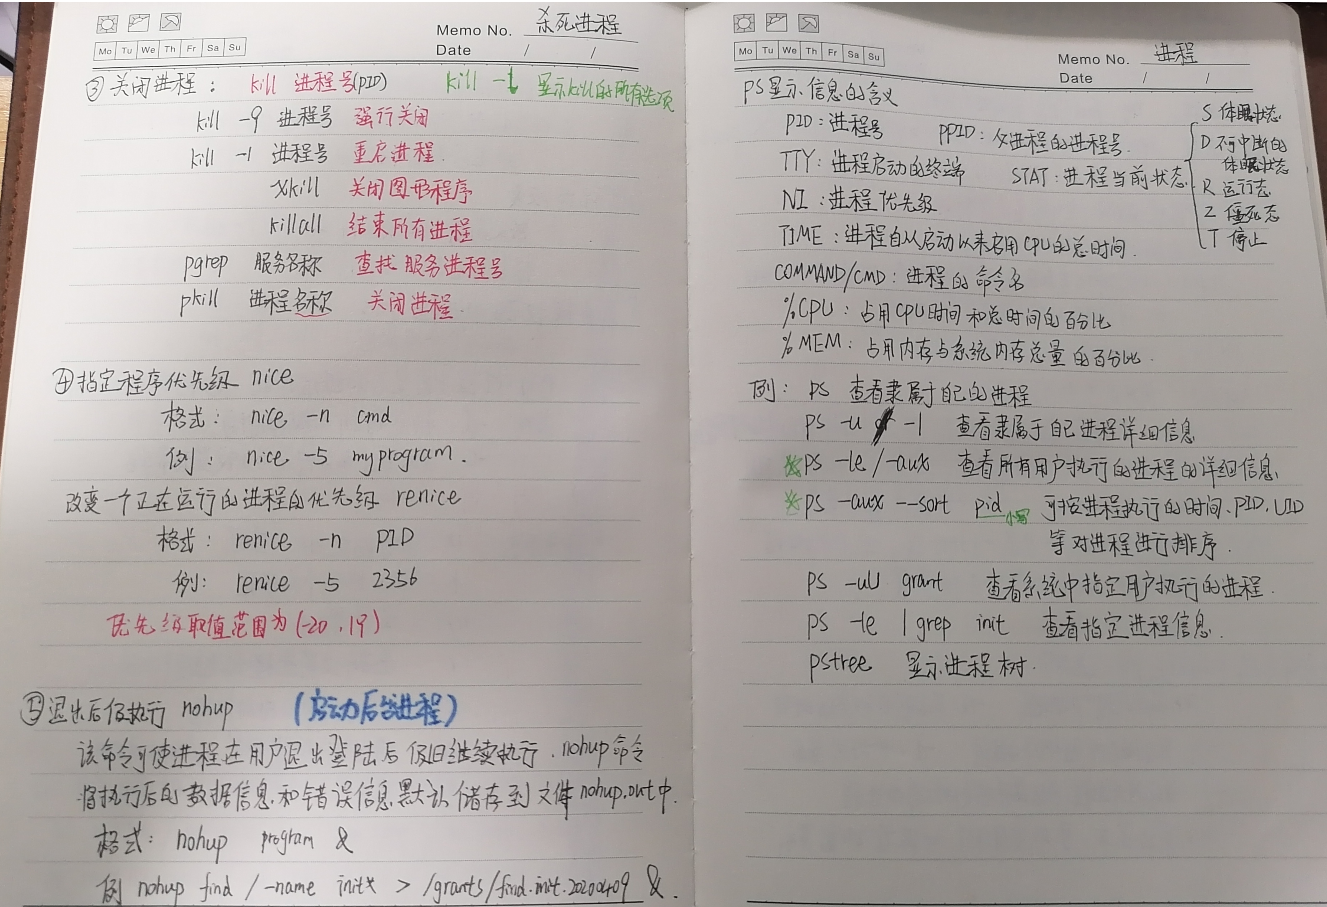 Memo No. 杀死进程
Mo Tu We Th Fr Sa Su
Date / /
③关闭进程： kill 进程号(PID) kill -l 显示kill的所有选项
kill -9 进程号 强行关闭
kill -1 进程号 重启进程.
xkill 关闭图形程序
killall 结束所有进程
pgrep 服务名称 查找服务进程号
pkill 进程名称 关闭进程.
④指定程序优先级 nice
格式： nice -n cmd
例： nice -5 myprogram.
改变一个正在运行的进程的优先级 renice
格式： renice -n PID
例： renice -5 2356
优先级取值范围为(-20,19)
⑤退出后仍执行 nohup (启动后台进程)
该命令可使进程在用户退出登陆后仍旧继续执行.nohup命令
将执行后的数据信息和错误信息默认储存到文件nohup.out中.
格式： nohup program &
例 nohup find / -name init* > /grants/find.init.20200409 &.
Memo No. 进程
Mo Tu We Th Fr Sa Su
Date / /
PS显示信息的含义
PID：进程号 PPID：父进程的进程号.
TTY：进程启动的终端 STAT：进程当前状态
S 休眠状态
D 不可中断的
休眠状态
R 运行态
Z 僵死态
T 停止
NI：进程优先级
TIME：进程自从启动以来启用CPU的总时间.
COMMAND/CMD：进程的命令名
%CPU：占用CPU时间和总时间的百分比
%MEM：占用内存与系统内存总量的百分比.
例： ps 查看隶属于自己的进程
ps -u -l 查看隶属于自己进程详细信息
*ps -le/-aux 查看所有用户执行的进程的详细信息
*ps -aux --sort pid 小写 可按进程执行的时间、PID、UID
等对进程进行排序.
ps -uU grant 查看系统中指定用户执行的进程.
ps -le | grep init 查看指定进程信息.
pstree 显示进程树.